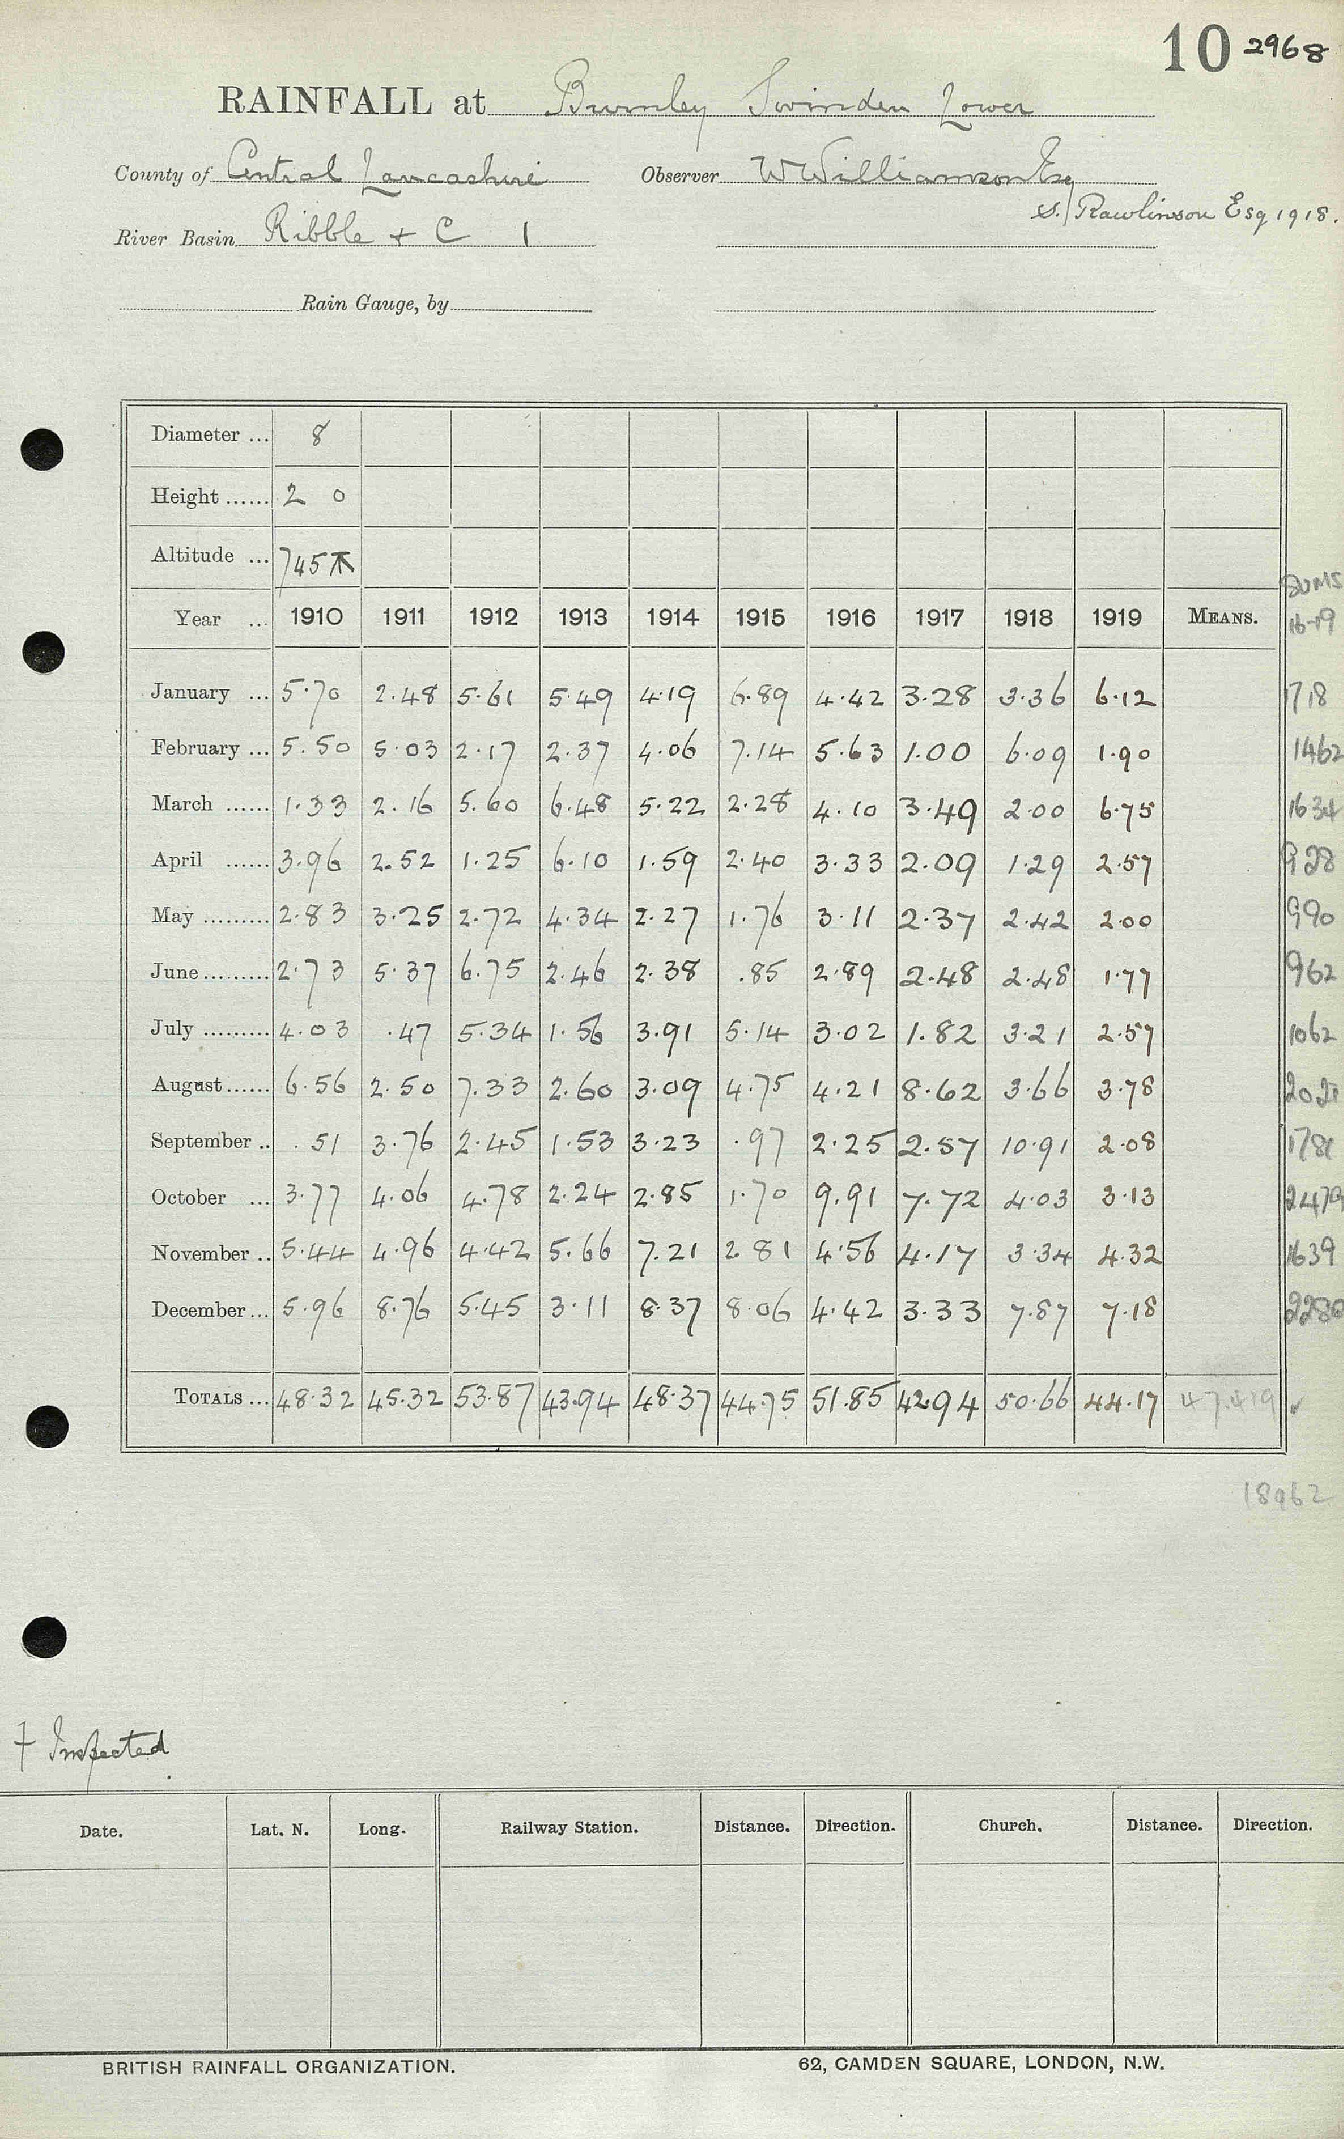 10 2968
RAINFALL at Burnley Swinden Lower
County of Central Lancashire Observer W Williamson Esq
S. Rawlinson Esq 1918.
River Basin Ribble + C 1
Rain Gauge, by
Diameter ... 8
Height ...... 2 0
Altitude ... 745
SUMS
Year ... 1910 1911 1912 1913 1914 1915 1916 1917 1918 1919 MEANS. 16-19
January ... 5.70 2.48 5.61 5.49 4.19 6.89 4.42 3.28 3.36 6.12 1718
February ... 5.50 5.03 2.17 2.37 4.06 7.14 5.63 1.00 6.09 1.90 1462
March ...... 1.33 2.16 5.60 6.48 5.22 2.28 4.10 3.49 2.00 6.75 1634
April ...... 3.96 2.52 1.25 6.10 1.59 2.40 3.33 2.09 1.29 2.57 928
May ......... 2.83 3.25 2.72 4.34 2.27 1.76 3.11 2.37 2.42 2.00 990
June ......... 2.73 5.37 6.75 2.46 2.38 .85 2.89 2.48 2.48 1.77 962
July ......... 4.03 .47 5.34 1.56 3.91 5.14 3.02 1.82 3.21 2.57 1062
August ...... 6.56 2.50 7.33 2.60 3.09 4.75 4.21 8.62 3.66 3.78
September .. .51 3.76 2.45 1.53 3.23 .97 2.25 2.57 10.91 2.08 1781
October ... 3.77 4.06 4.78 2.24 2.85 1.70 9.91 7.72 4.03 3.13 2479
November .. 5.44 4.96 4.42 5.66 7.21 2.81 4.56 4.17 3.34 4.32 1639
December ... 5.96 8.76 5.45 3.11 8.37 8.06 4.42 3.33 7.87 7.18 2280
TOTALS ... 48.32 45.32 53.87 43.94 48.37 44.75 51.85 42.94 50.66 44.17 47.419 ✓
18962
+ Inspected
Date. Lat. N. Long. Railway Station. Distance. Direction. Church. Distance. Direction.
BRITISH RAINFALL ORGANIZATION. 62, CAMDEN SQUARE, LONDON, N.W.